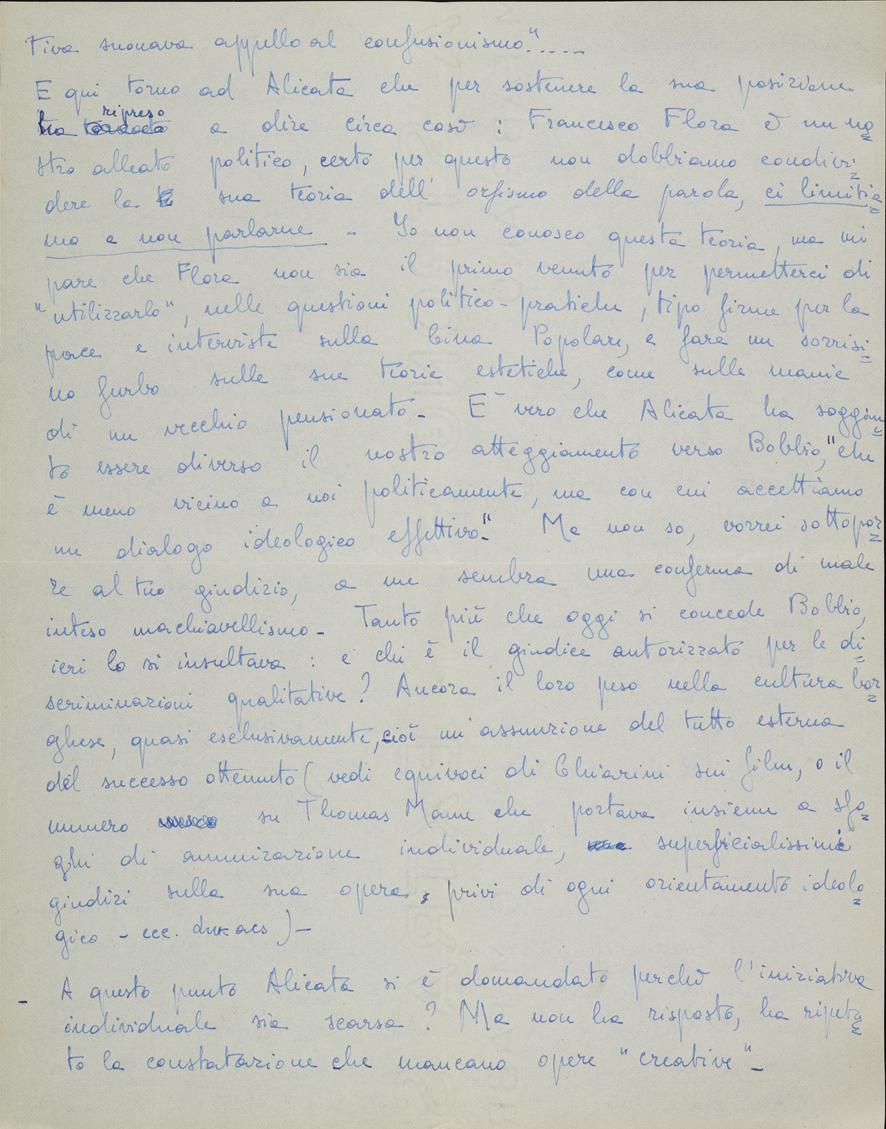 tiva suonava appello al confusionismo".....
E qui torno ad Alicata che per sostenere la sua posizione
ha ripreso a dire circa così : Francesco Flora è un no
stro alleato politico, certo per questo non dobbiamo condivi
dere la sua teoria dell' orfismo della parola, ci limitia
mo a non parlarne - Io non conosco questa teoria, ma mi
pare che Flora non sia il primo venuto per permetterci di
"utilizzarlo", nelle questioni politico-pratiche, tipo firme per la
pace e interviste sulla Cina Popolare, e fare un sorrisi
no furbo sulle sue teorie estetiche, come sulle manie
di un vecchio pensionato - E' vero che Alicata ha soggiun
to essere diverso il nostro atteggiamento verso Bobbio, "che
è meno vicino a noi politicamente, ma con cui accettiamo
un dialogo ideologico effettivo". Ma non so, vorrei sottopor
re al tuo giudizio, a me sembra una conferma di male
inteso machiavellismo - Tanto più che oggi si concede Bobbio,
ieri lo si insultava : e chi è il giudice autorizzato per le di
scriminazioni qualitative? Ancora il loro peso nella cultura bor
ghese, quasi esclusivamente, cioè un'assunzione del tutto esterna
del successo ottenuto (vedi equivoci di Chiarini sui film, o il
numero su Thomas Mann che portava insieme a sfo
ghi di ammirazione individuale, superficialissimi
giudizi sulla sua opera, privi di ogni orientamento ideolo
gico - ecc. Lukacs) -
- A questo punto Alicata si è domandato perchè l'iniziativa
individuale sia scarsa? Ma non ha risposto, ha ripetu
to la constatazione che mancano opere "creative" -